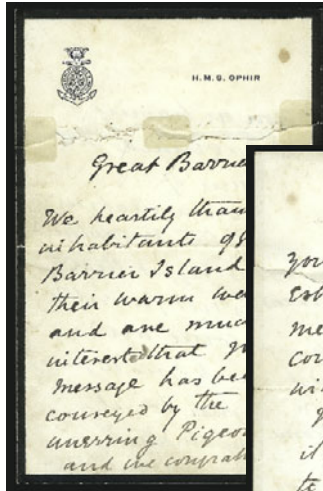 H.M.S. OPHIR
Great Barrie
We heartily than
inhabitants of
Barrier Island
their warm we
and are muc
interested that
message has bee
conveyed by the
unerring Pigeo
and we congrat
you
Est
me
con
wi
il
te